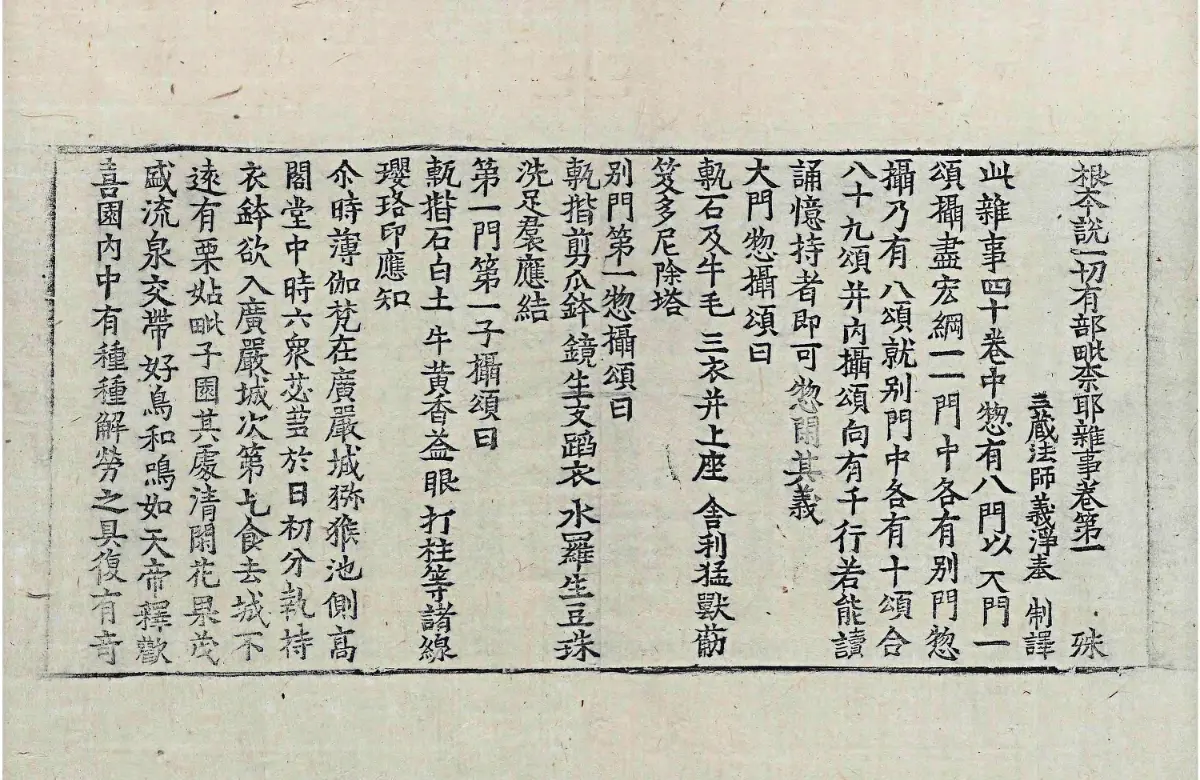 根本說一切有部毗柰耶雜事卷第一 殊
三藏法師義淨奉 制譯
此雜事四十卷中惣有八門以大門一
頌攝盡宏綱一一門中各有別門惣
攝乃有八頌就別門中各有十頌合
八十九頌并內攝頌向有千行若能讀
誦憶持者即可惣閑其義
大門惣攝頌曰
甎石及牛毛 三衣并上座 舍利猛獸筋
笈多尼除塔
別門第一惣攝頌曰
甎揩剪爪鉢 鏡生支蹈衣 水羅生豆珠
洗足裙應結
第一門第一子攝頌曰
甎揩石白土 牛黃香益眼 打柱等諸線
瓔珞印應知
尒時薄伽梵在廣嚴城獼猴池側高
閣堂中時六衆苾芻於日初分執持
衣鉢欲入廣嚴城次第乞食去城不
遠有栗姑毗子園其處清閑花果茂
盛流泉交帶好鳥和鳴如天帝釋歡
喜園內中有種種解勞之具復有奇